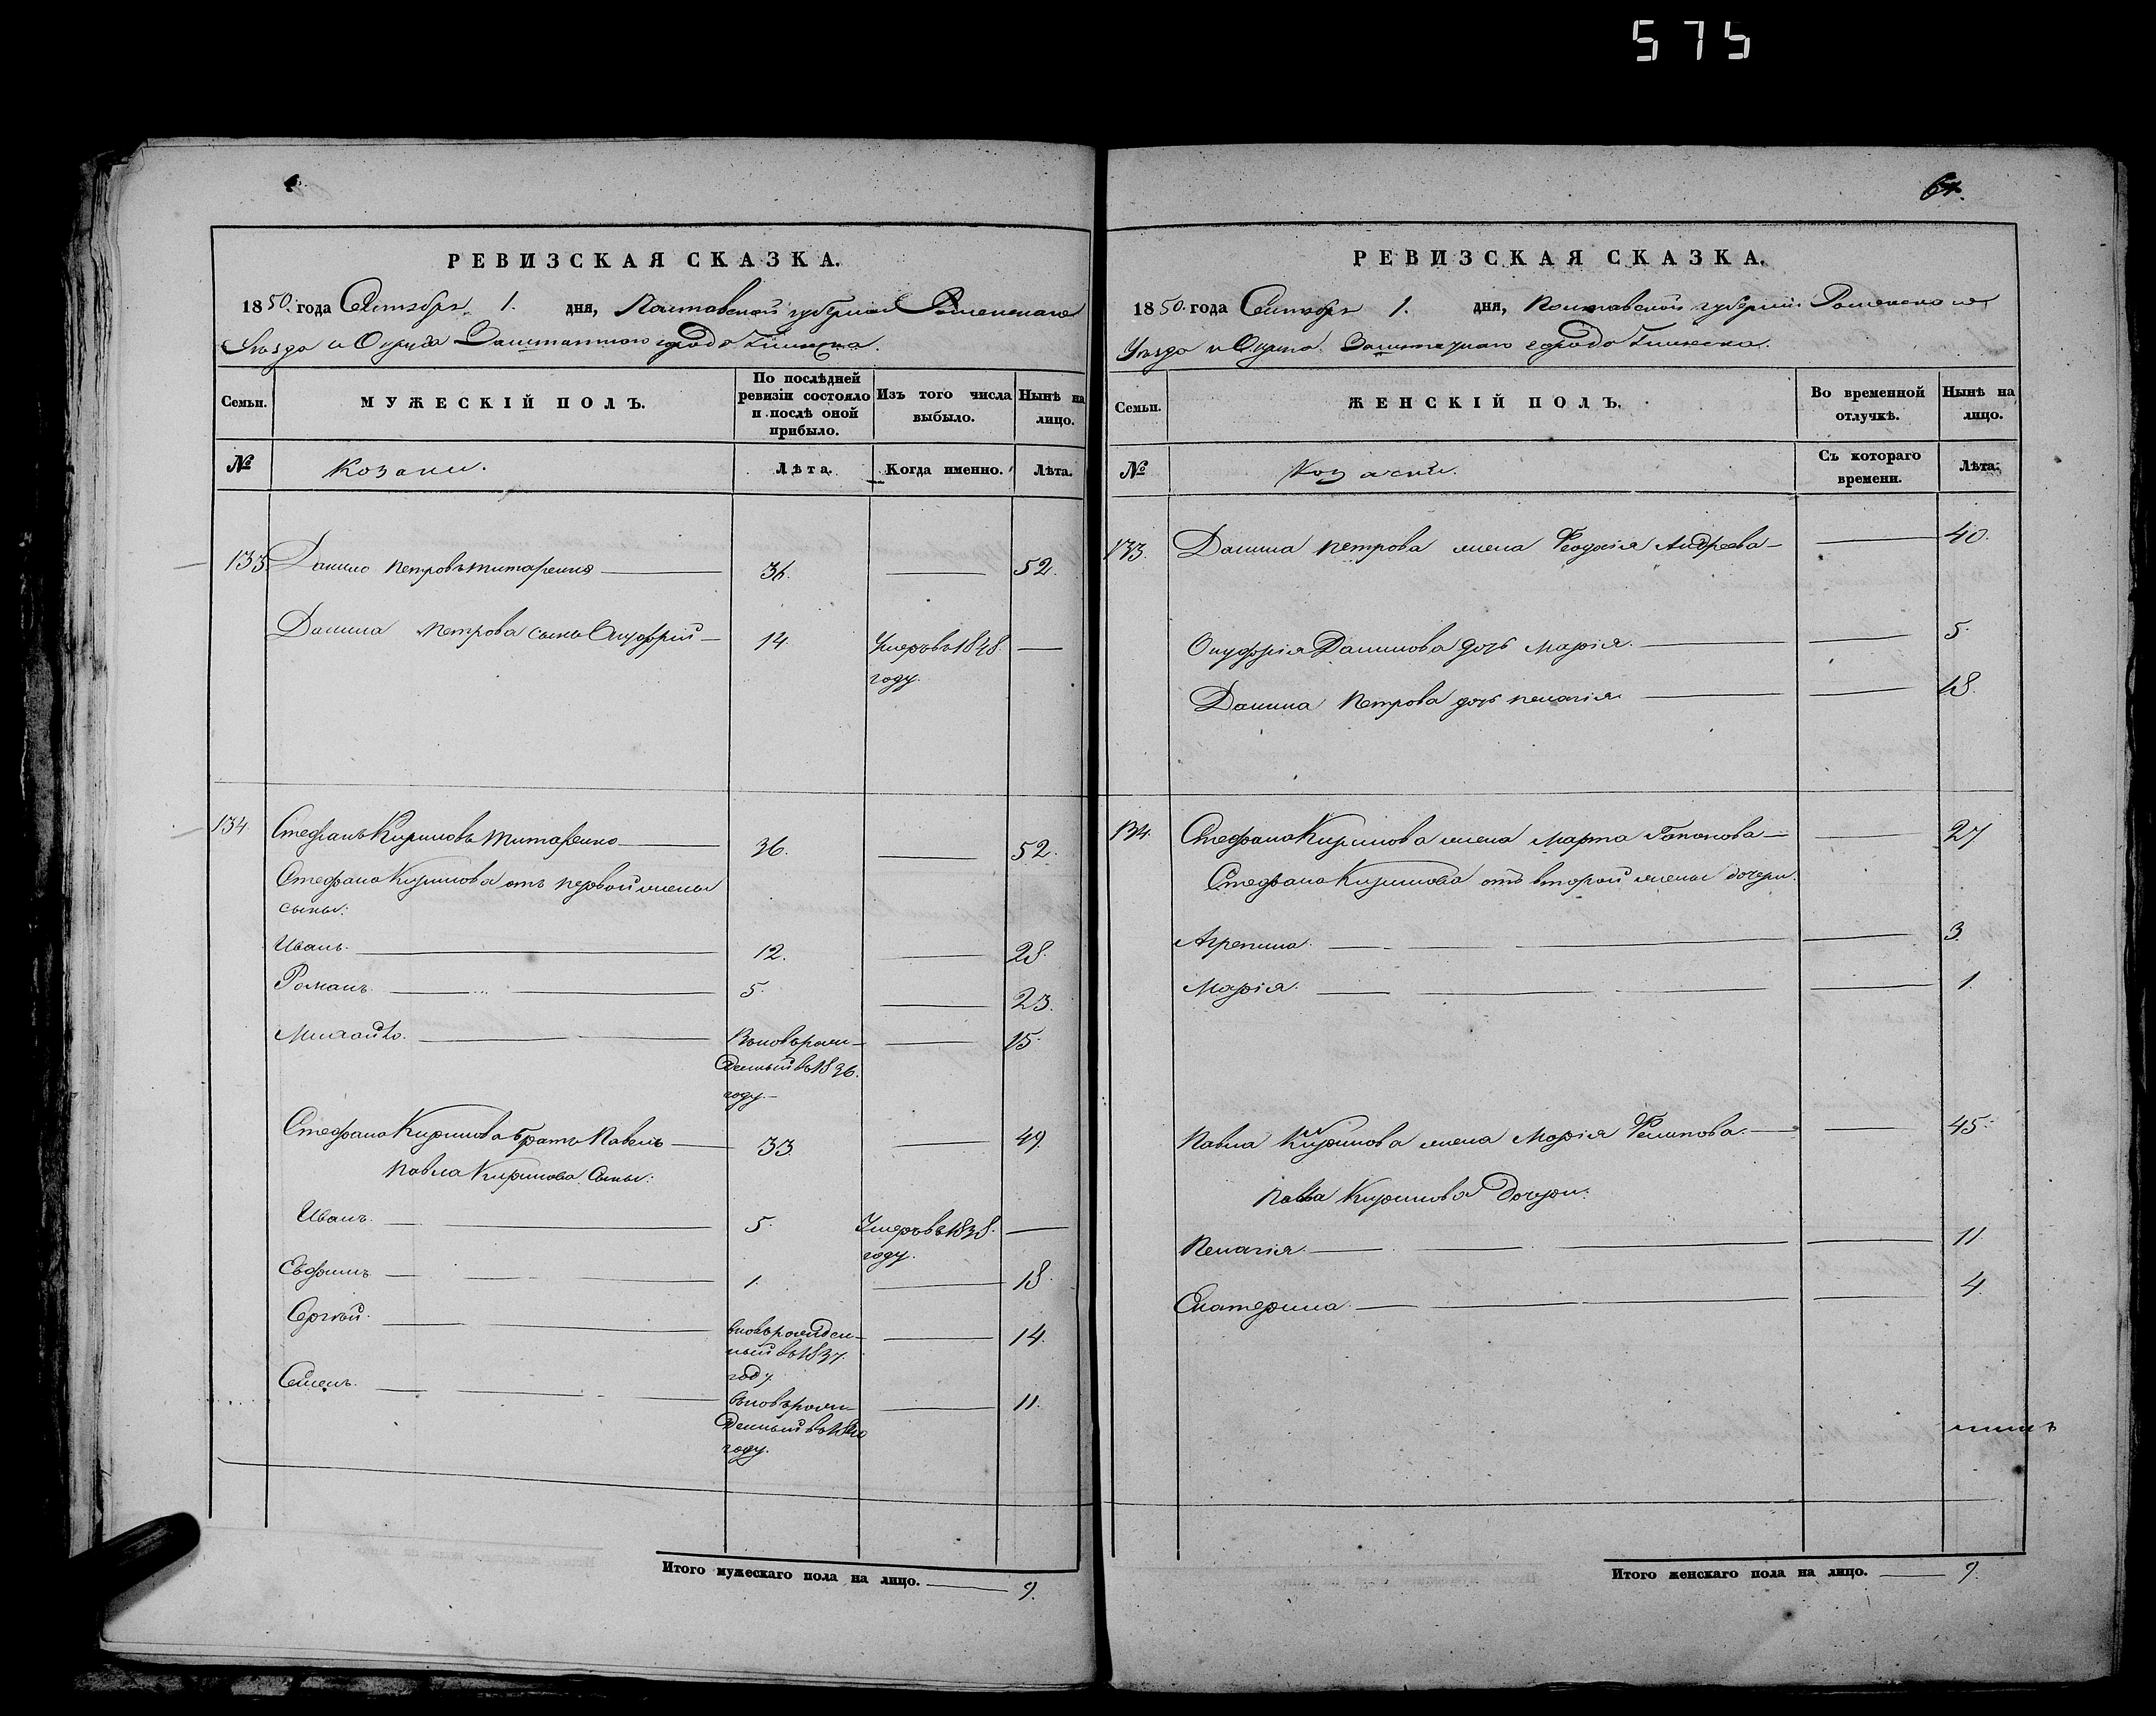 575
РЕВИЗСКАЯ СКАЗКА.
1850. года Сентября 1. дня, Полтавской губернiи Роменскаго
Уезда и Округа Заштатного города Глинска.
Семьи. МУЖЕСКІЙ ПОЛЪ. По послѣдней ревизіи состояло и послѣ оной прибыло. Изъ того числа выбыло. Нынѣ на лицо.
№ Козаки. Лѣта. Когда именно. Лѣта.
133 Данило Петровъ Титаренко 36. 52.
Данила Петрова сынъ Онуфрій 14. Умеръ въ 1848. году.
134 Стефанъ Кириловъ Титаренко 36. 52.
Стефана Кирилова отъ первой жены
сыны:
Иванъ. 12. 28.
Романъ. 5. 23.
Михайло. Вновьрож-
денный въ 1836. 15.
году.
Стефана Кирилова братъ Павелъ 33. 49.
Павла Кирилова Сыны:
Иванъ. 5. Умеръ въ 1838. году.
Ефимъ 1. 18.
Сергѣй. вновьрожден-
ный въ 1837. 14.
году
Семенъ. вновьрож-
денный въ 1840 11.
году.
Итого мужескаго пола на лицо. 9.
РЕВИЗСКАЯ СКАЗКА.
1850. года Сентября 1. дня, Полтавской губерніи Роменскаго
Уезда и Округа Заштатного города Глинска.
Семьи. ЖЕНСКІЙ ПОЛЪ. Во временной отлучкѣ. Нынѣ на лицо.
№ Козачки. Съ котораго времени. Лѣта.
133. Данила Петрова жена Феодосія Андреева 40.
Онуфрія Данилова дочь Марія. 5.
Данила Петрова дочь Пелагія 18.
134. Стефана Кирилова жена Марта Гапонова 27
Стефана Кирилова отъ второй жены дочери:
Агрепина. 3.
Марія. 1.
Павла Кирилова жена Марія Филипова. 45.
Павла Кирилова Дочери:
Пелагія 11
Екатерина 4.
Итого женскаго пола на лицо. 9.